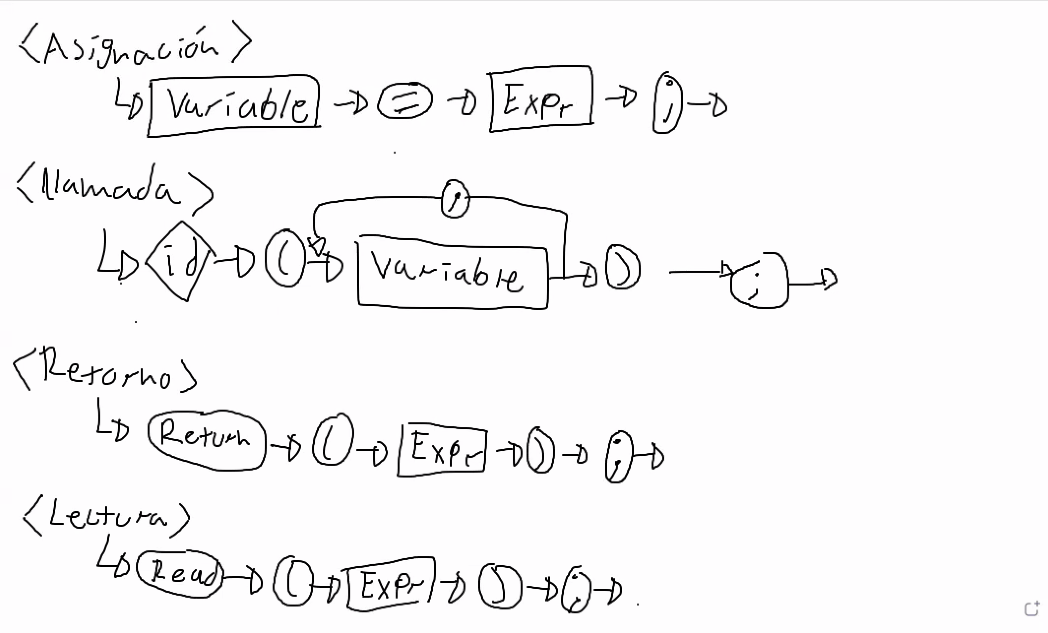 <Asignación>
Variable = Expr ;
<llamada>
,
id ( Variable ) ;
<Retorno>
Return ( Expr ) ;
<Lectura>
Read ( Expr ) ;